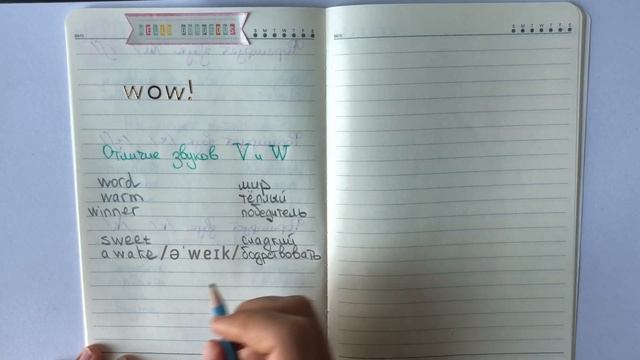 wow!
Отличие звуков V и W
word мир
warm тёплый
winner победитель
sweet сладкий
awake /ə'weɪk/ бодрствовать